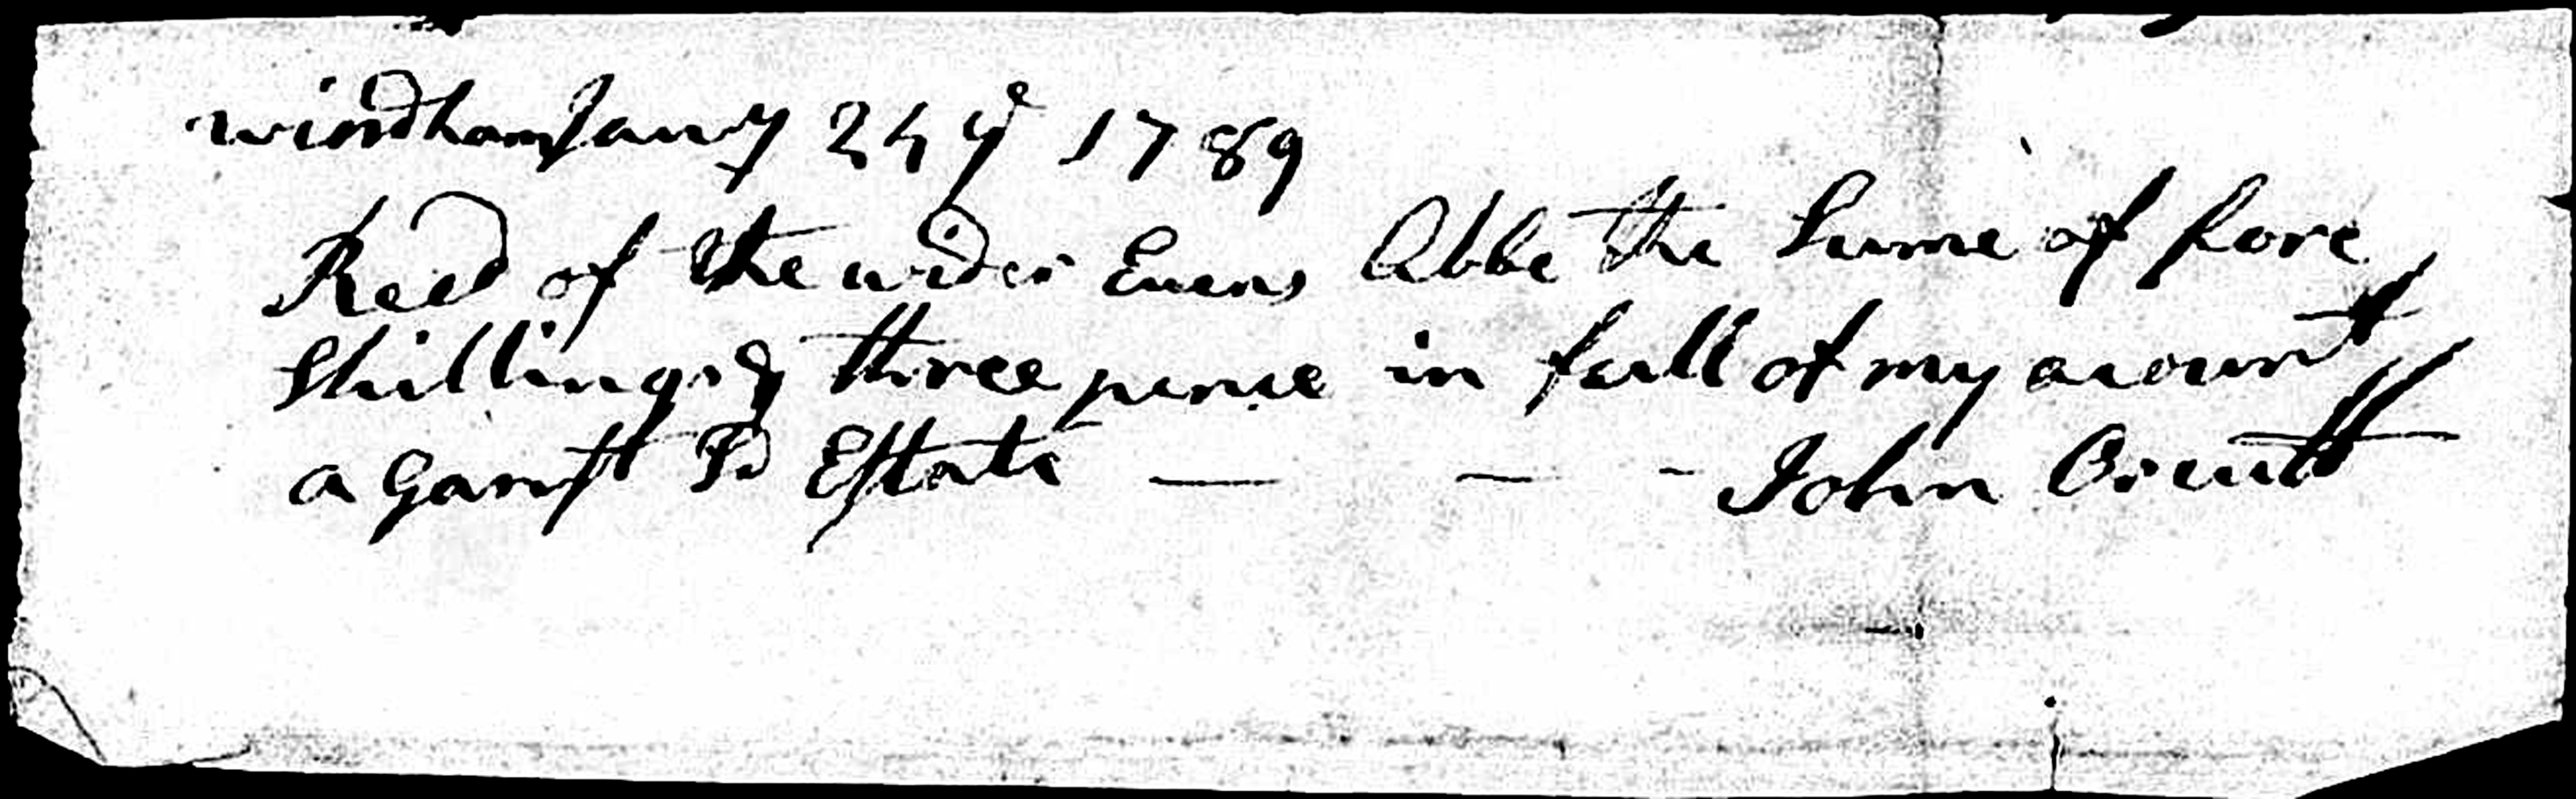 windham Janry 24 ye 1789
Recd of the wider Eunes Abbe the Sume of fore
Shillings & three pence in full of my acount
a Ganst Sd Estate — — - John Orcutt